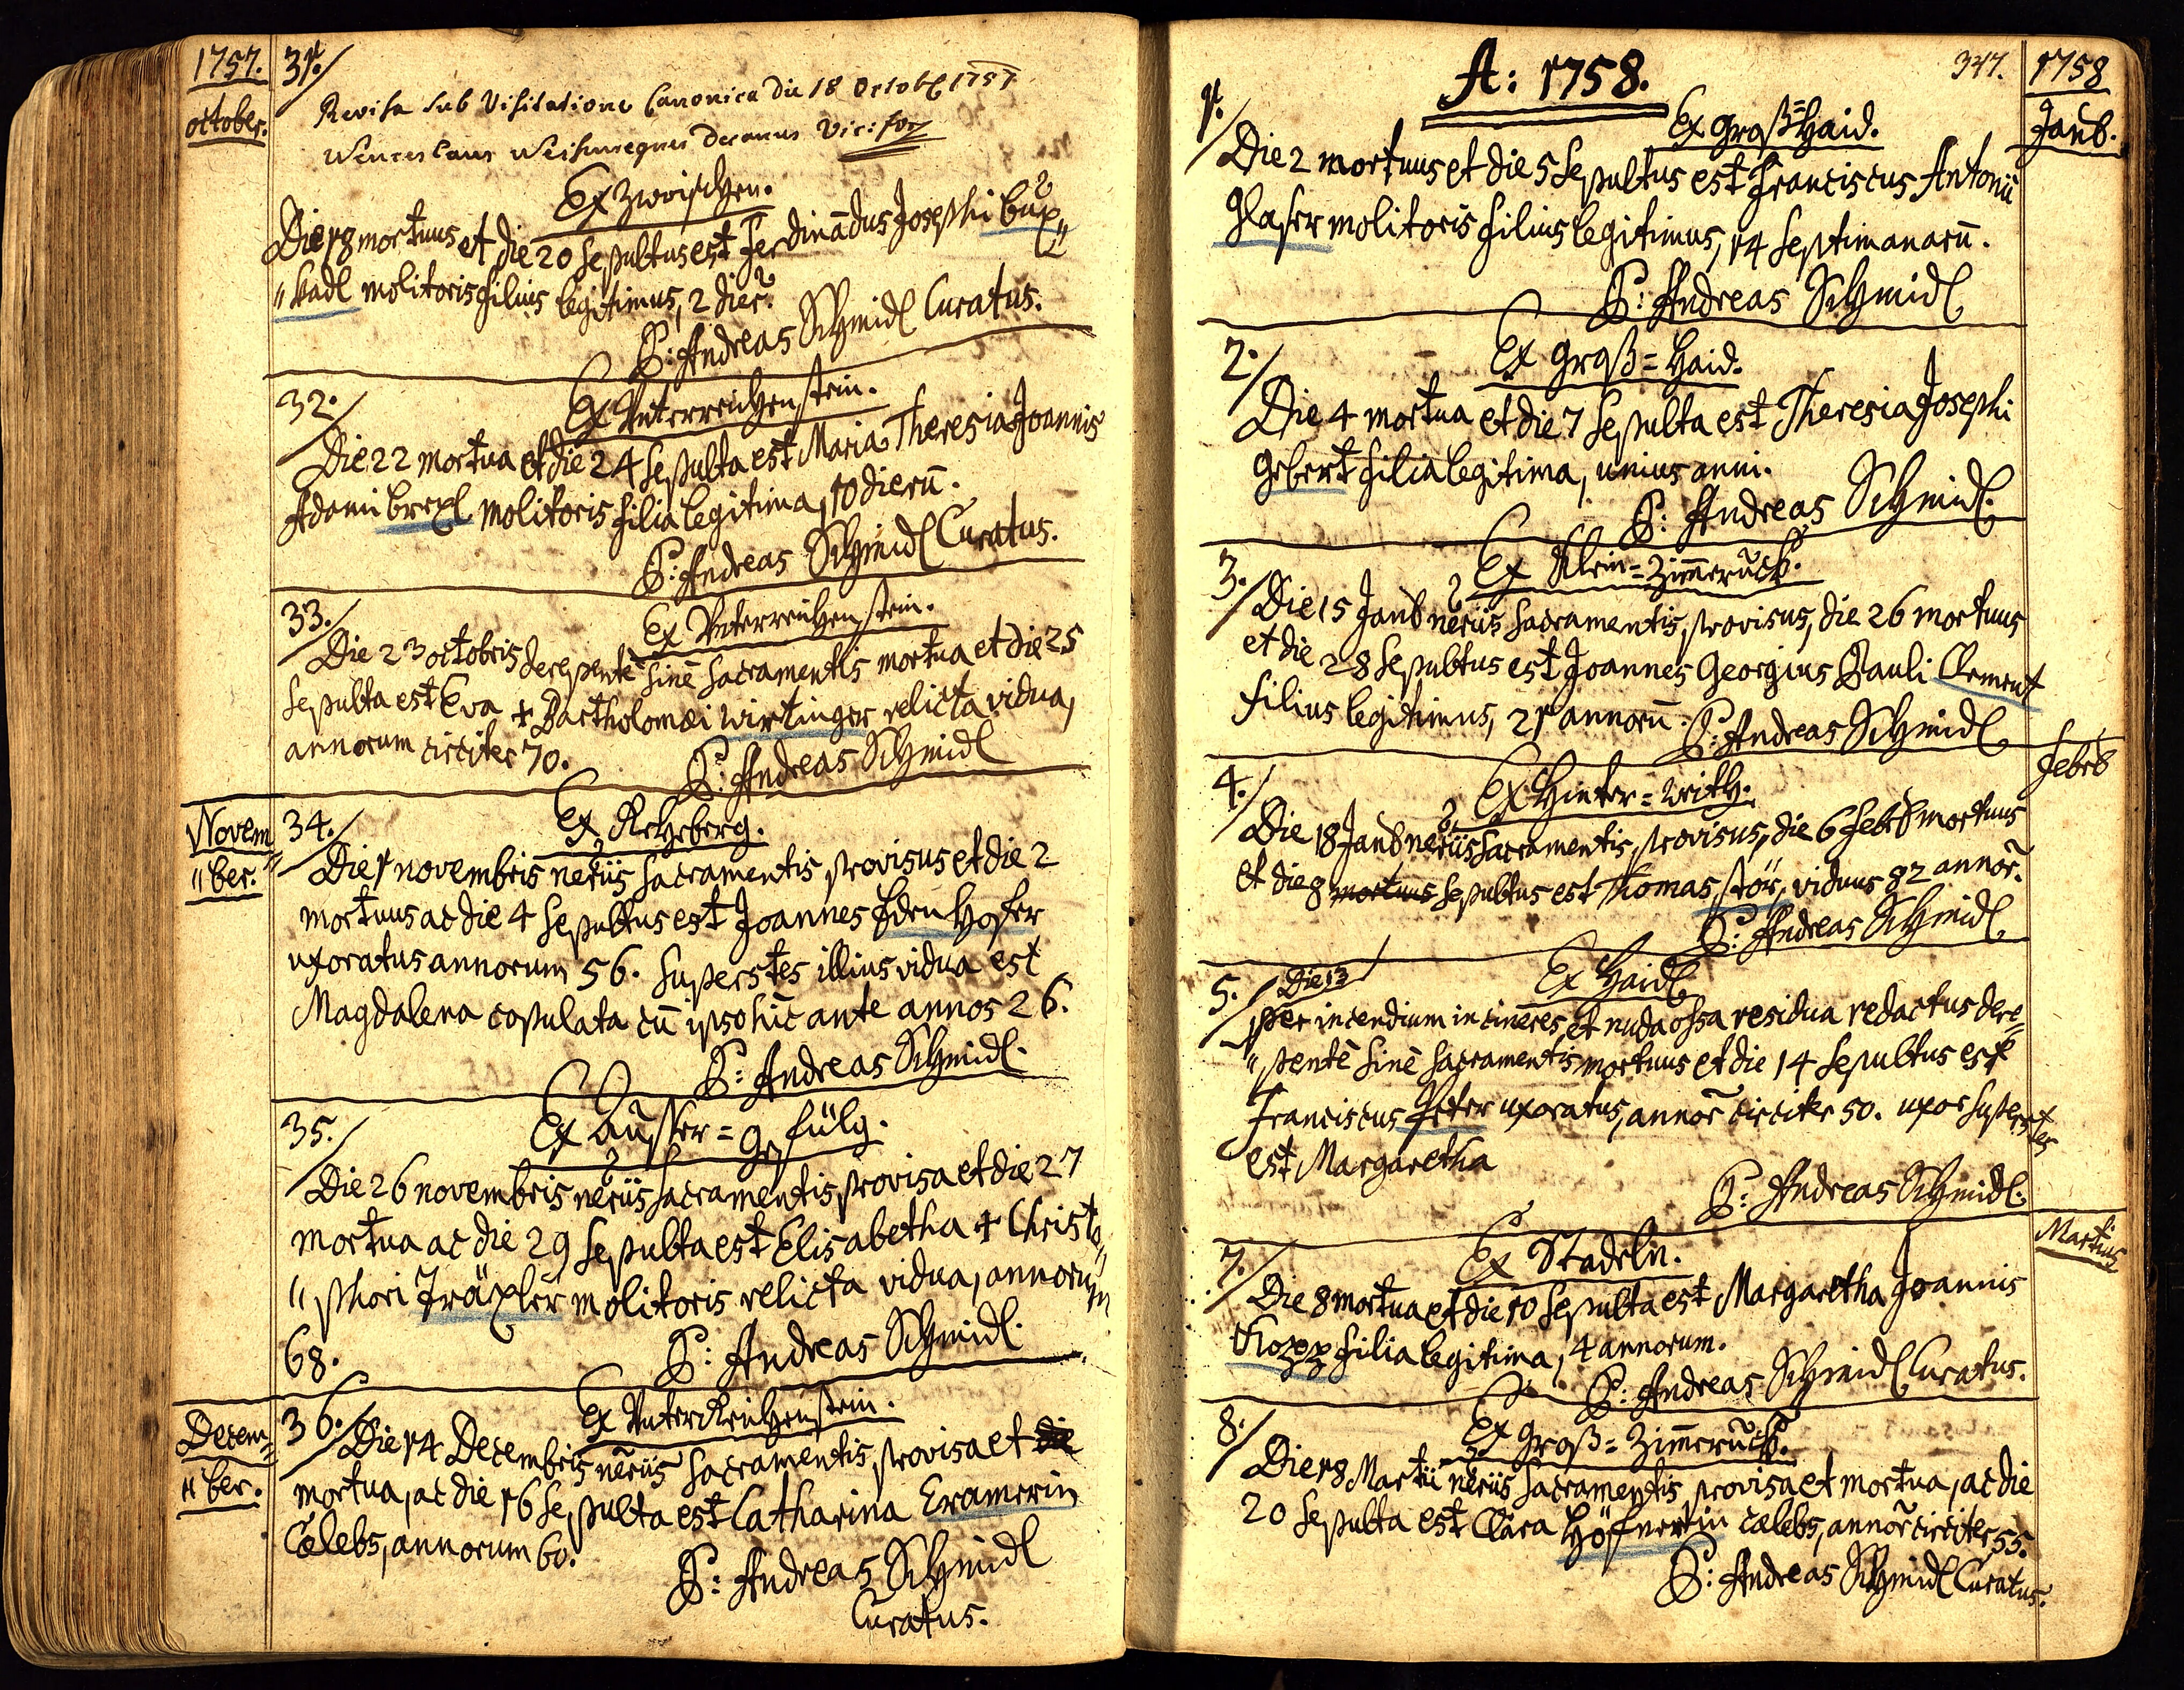 1757.
October.
31.
Revisa sub Visitatione Canonica Die 18 Octob 1757
Wenceslaus Decanus Vic: for
Ex Zwoischen.
Die 18 mortuus et die 20 Sepultus est Ferdinādus Josephi Bux„
„kadl molitoris filius legitimus, 2 dier.
P: Andreas Schmidl Curatus.
32.
Ex Unterreichenstein.
Die 22 mortua et die 24 Sepulta est Maria Theresia Joannis
Adami Brexl molitoris filia legitima, 10 dierū.
P: Andreas Schmidl Curatus.
33.
Ex Unterreichenstein.
Die 23 octobris derepentè sinè Sacramentis mortua et die 25
Sepulta est Eva + Bartholomæi Wirtinger relicta vidua,
annorum circiter 70.
P: Andreas Schmidl
Novem„
„ber.
34.
Ex Rehberg.
Die 1 novembris neriis Sacramentis provisus et die 2
mortuus ac die 4 Sepultus est Joannes Edenhofer
uxoratus annorum 56. Superstes illius vidua est
Magdalena copulata cū ipso hīc ante annos 26.
P: Andreas Schmidl.
35.
Ex Ausser=gfülg.
Die 26 novembris neriis Sacramentis provisa et die 27
mortua ac die 29 Sepulta est Elisabetha + Christo„
„phori Träxler molitoris relicta vidua, annorum
68.
P: Andreas Schmidl.
Decem„
„ber.
36.
Ex Unterreichenstein.
Die 14 Decembris neriis Sacramentis provisa et die
mortua, ac die 16 Sepulta est Catharina Cramerin
Cælebs, annorum 60.
P: Andreas Schmidl
Curatus.
A: 1758.
347.
1758
Janb.
1.
Ex Groß=Haid.
Die 2 mortuus et die 5 Sepultus est Franciscus Antonii
Glaser molitoris filius legitimus, 14 Septimanarū.
P: Andreas Schmidl
2.
Ex Groß=Haid.
Die 4 mortua et die 7 Sepulta est Theresia Josephi
Gebert filia legitima, unius anni.
P: Andreas Schmidl.
3.
Ex Klein=Zimmeruck.
Die 15 Janb neriis Sacramentis, provisus, die 26 mortuus
et die 28 Sepultus est Joannes Georgius Pauli Clement
filius legitimus, 21 annorū.
P: Andreas Schmidl
Febrb
4.
Ex Hinter=
Die 18 Janb neriis Sacramentis, provisus, die 6 Febrb mortuus
et die 8 mortuus Sepultus est Thomas Stör, viduus 82 annor.
P: Andreas Schmidl
5.
Die 13
Ex Haidl
per incendium in cineres et nuda ossa residua redactus dere„
„pentè sinè Sacramentis mortuus et die 14 Sepultus est
Franciscus Feter uxoratus, annor circiter 50. uxor superstes
est Margaretha
P: Andreas Schmidl.
Martius
7.
Ex Stadeln.
Die 8 mortua et die 10 Sepulta est Margaretha Joannis
filia legitima, 4 annorum.
P: Andreas Schmidl Curatus.
8.
Ex Groß=Zimmeruck.
Die 18 Martii neriis Sacramentis provisa et mortua, ac die
20 Sepulta est Clara Höfnerin cælebs, annor circiter 55.
P: Andreas Schmidl Curatus.